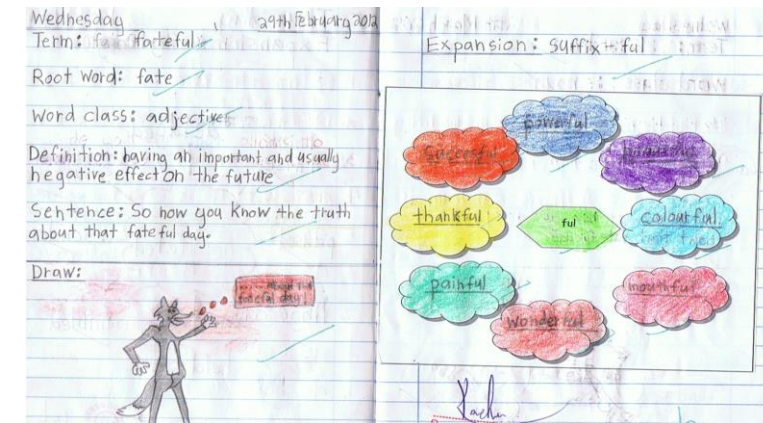 Wednesday 29th February 2012
Term: fateful
Root word: fate
Word class: adjective
Definition: having an important and usually
negative effect on the future
Sentence: So now you know the truth
about that fateful day.
Draw:
about the
fateful day!
Expansion: suffix - ful
powerful
succesful
thankful
ful
colourful
painful
mouthful
wonderful